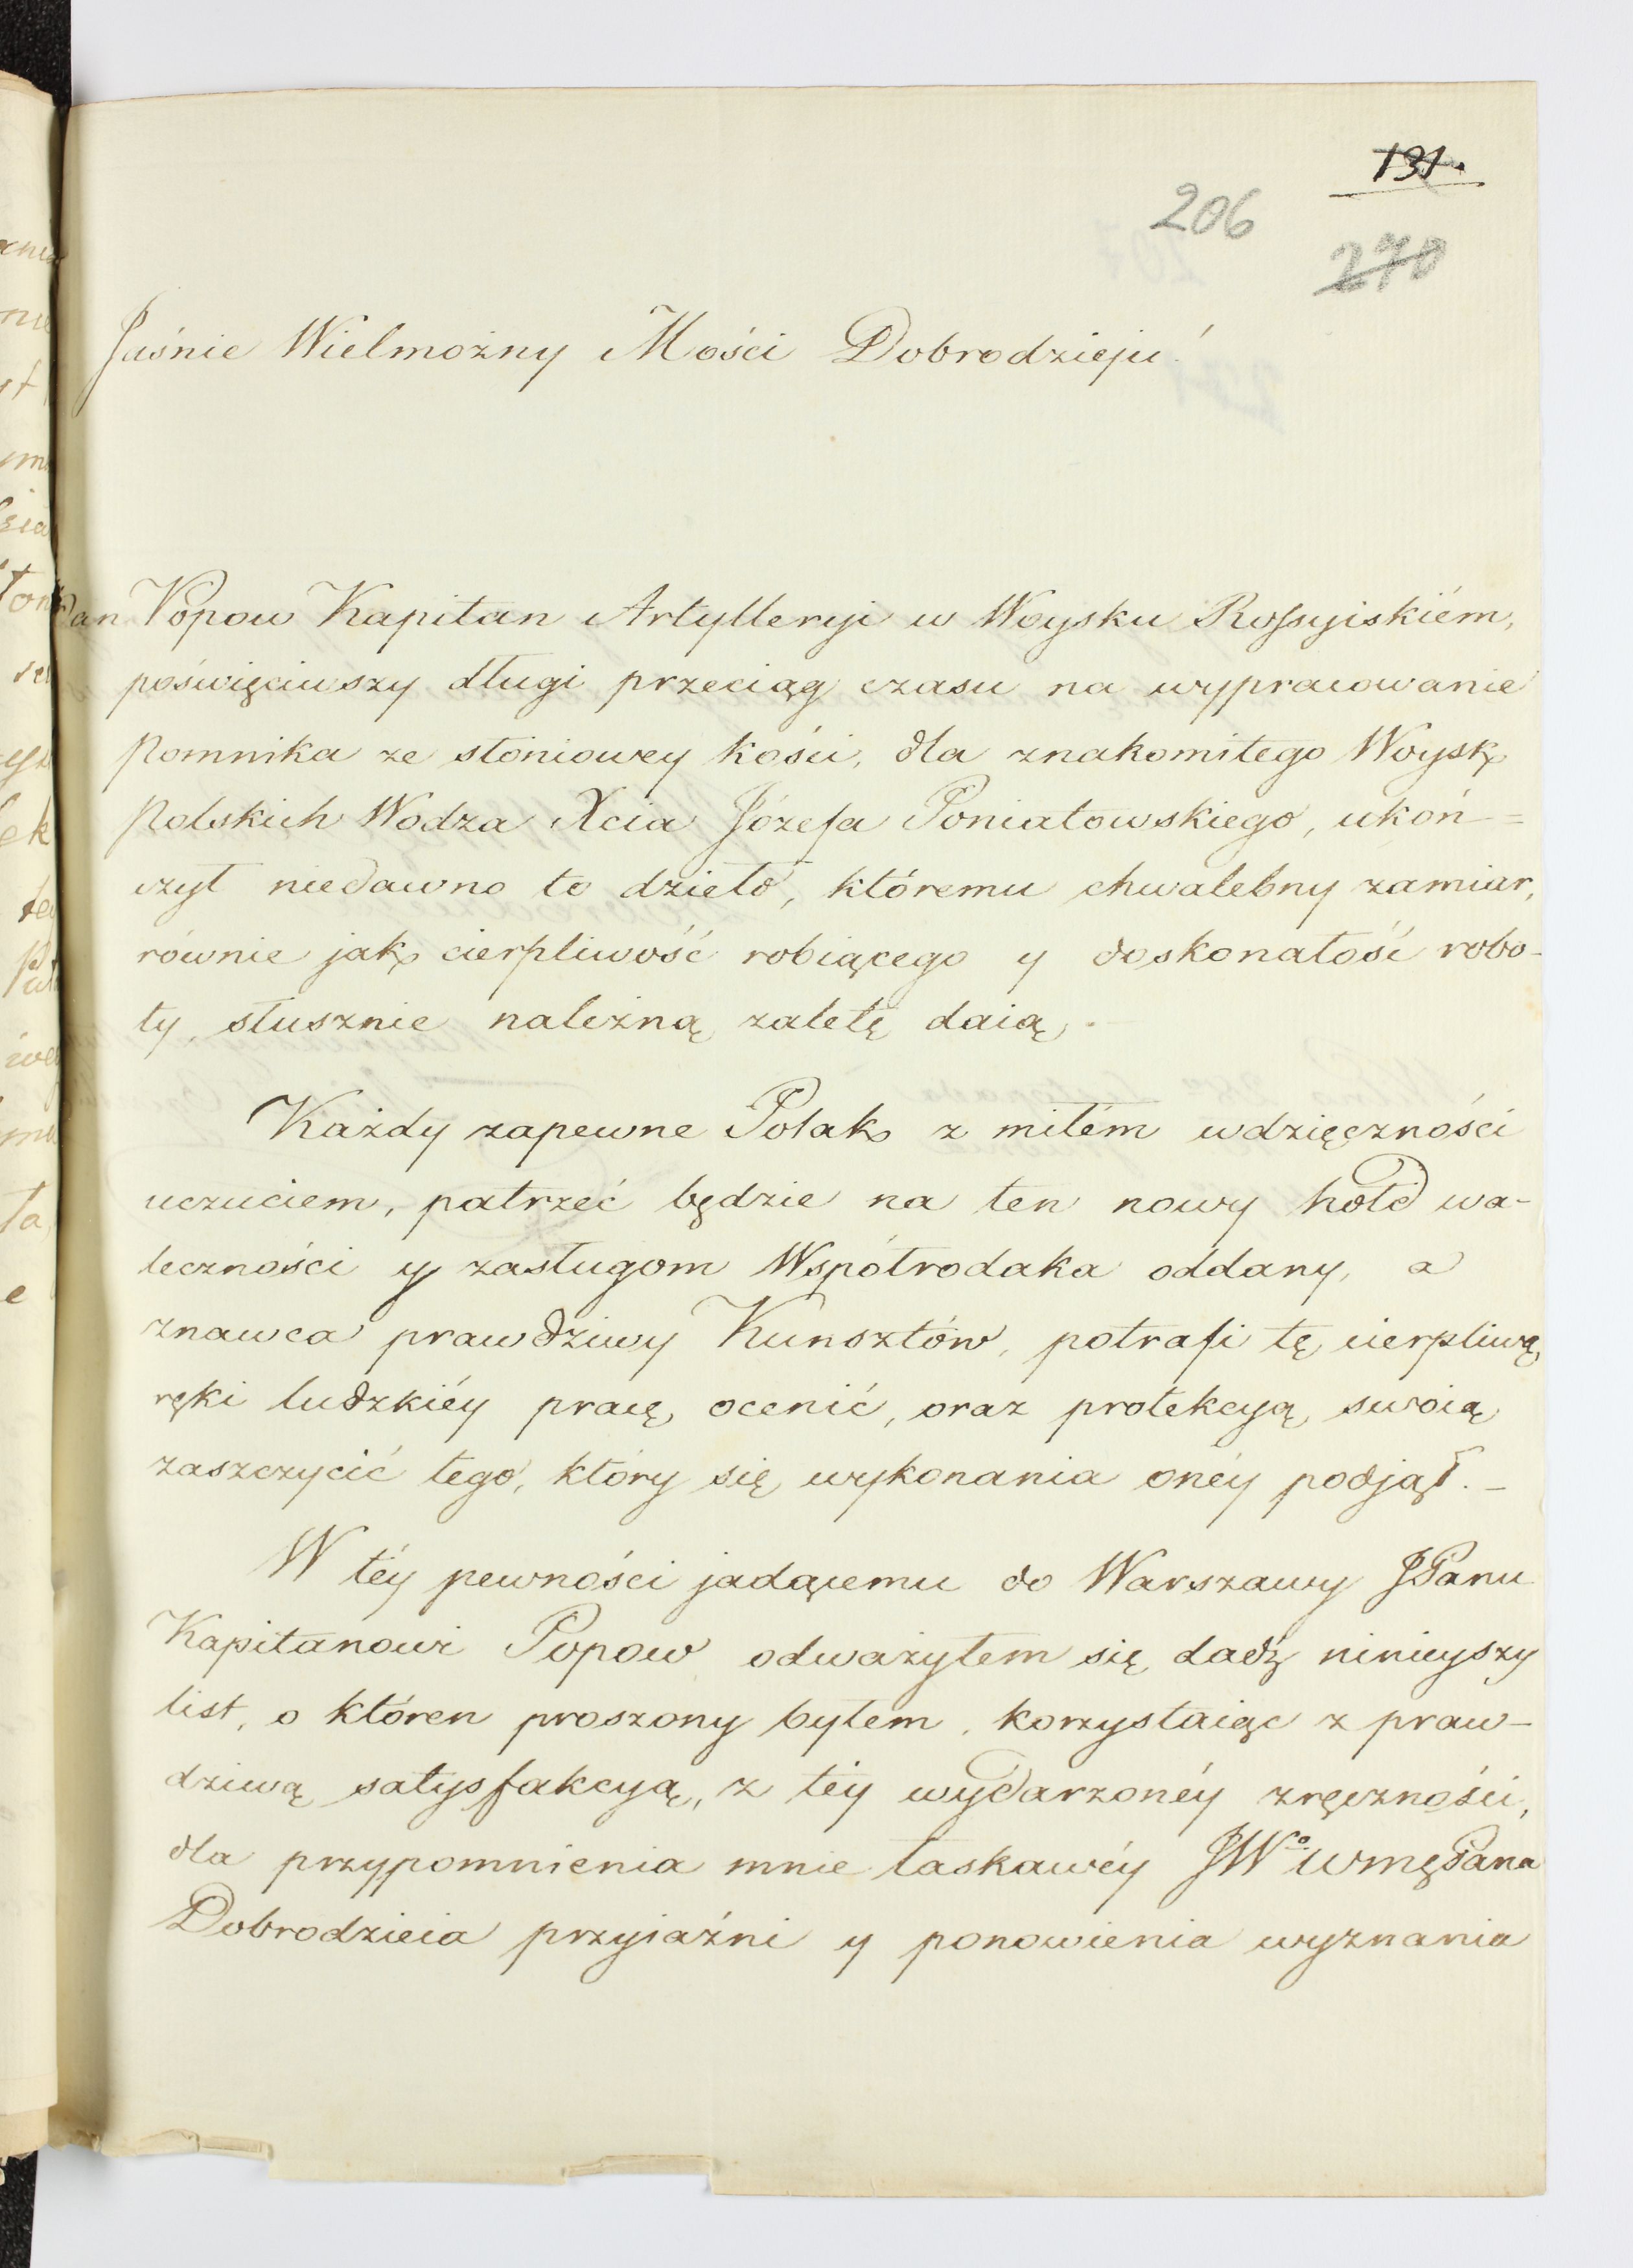 131.
206
270
Jaśnie Wielmożny Mości Dobrodzieju!
Pan Popow Kapitan Artylleryi w Woysku Rossyiskiém,
poświęciwszy długi przeciąg czasu na wypracowanie
pomnika ze słoniowey kości, dla znakomitego Woysk
Polskich Wodza Xcia Józefa Poniatowskiego, ukoń=
czył niedawno to dzieło, któremu chwalebny zamiar,
równie jak cierpliwość robiącego y doskonałość robo-
ty, słusznie należną zaletę daią.
Każdy zapewne Polak z miłém wdzięczności
uczuciem, patrzeć będzie na ten nowy hołd wa-
leczności y zasługom Współrodaka oddany, a
znawca prawdziwy Kunsztów, potrafi tę cierpliwą
ręki ludzkiéy pracę ocenić, oraz protekcyą swoią
zaszczycić tego, który się wykonania onéy podjął. -
W téy pewności jadącemu do Warszawy JPanu
Kapitanowi Popow odważyłem się dadź ninieyszy
list, o któren proszony byłem, korzystaiąc z praw-
dziwą satysfakcyą, z téy wydarzonéy zręczności,
dla przypomnienia mnie łaskawéy JWo WmęPana
Dobrodzieia przyiaźni y ponowienia wyznania